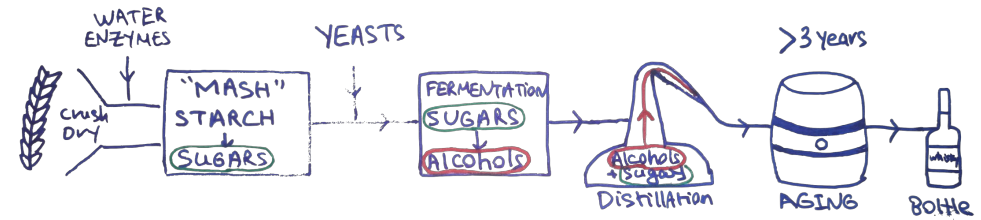 WATER
ENZYMES
Crush
Dry
"MASH"
STARCH
SUGARS
YEASTS
FERMENTATION
SUGARS
Alcohols
Alcohols
+ Sugars
Distillation
>3 years
AGING
Whisky
Bottle